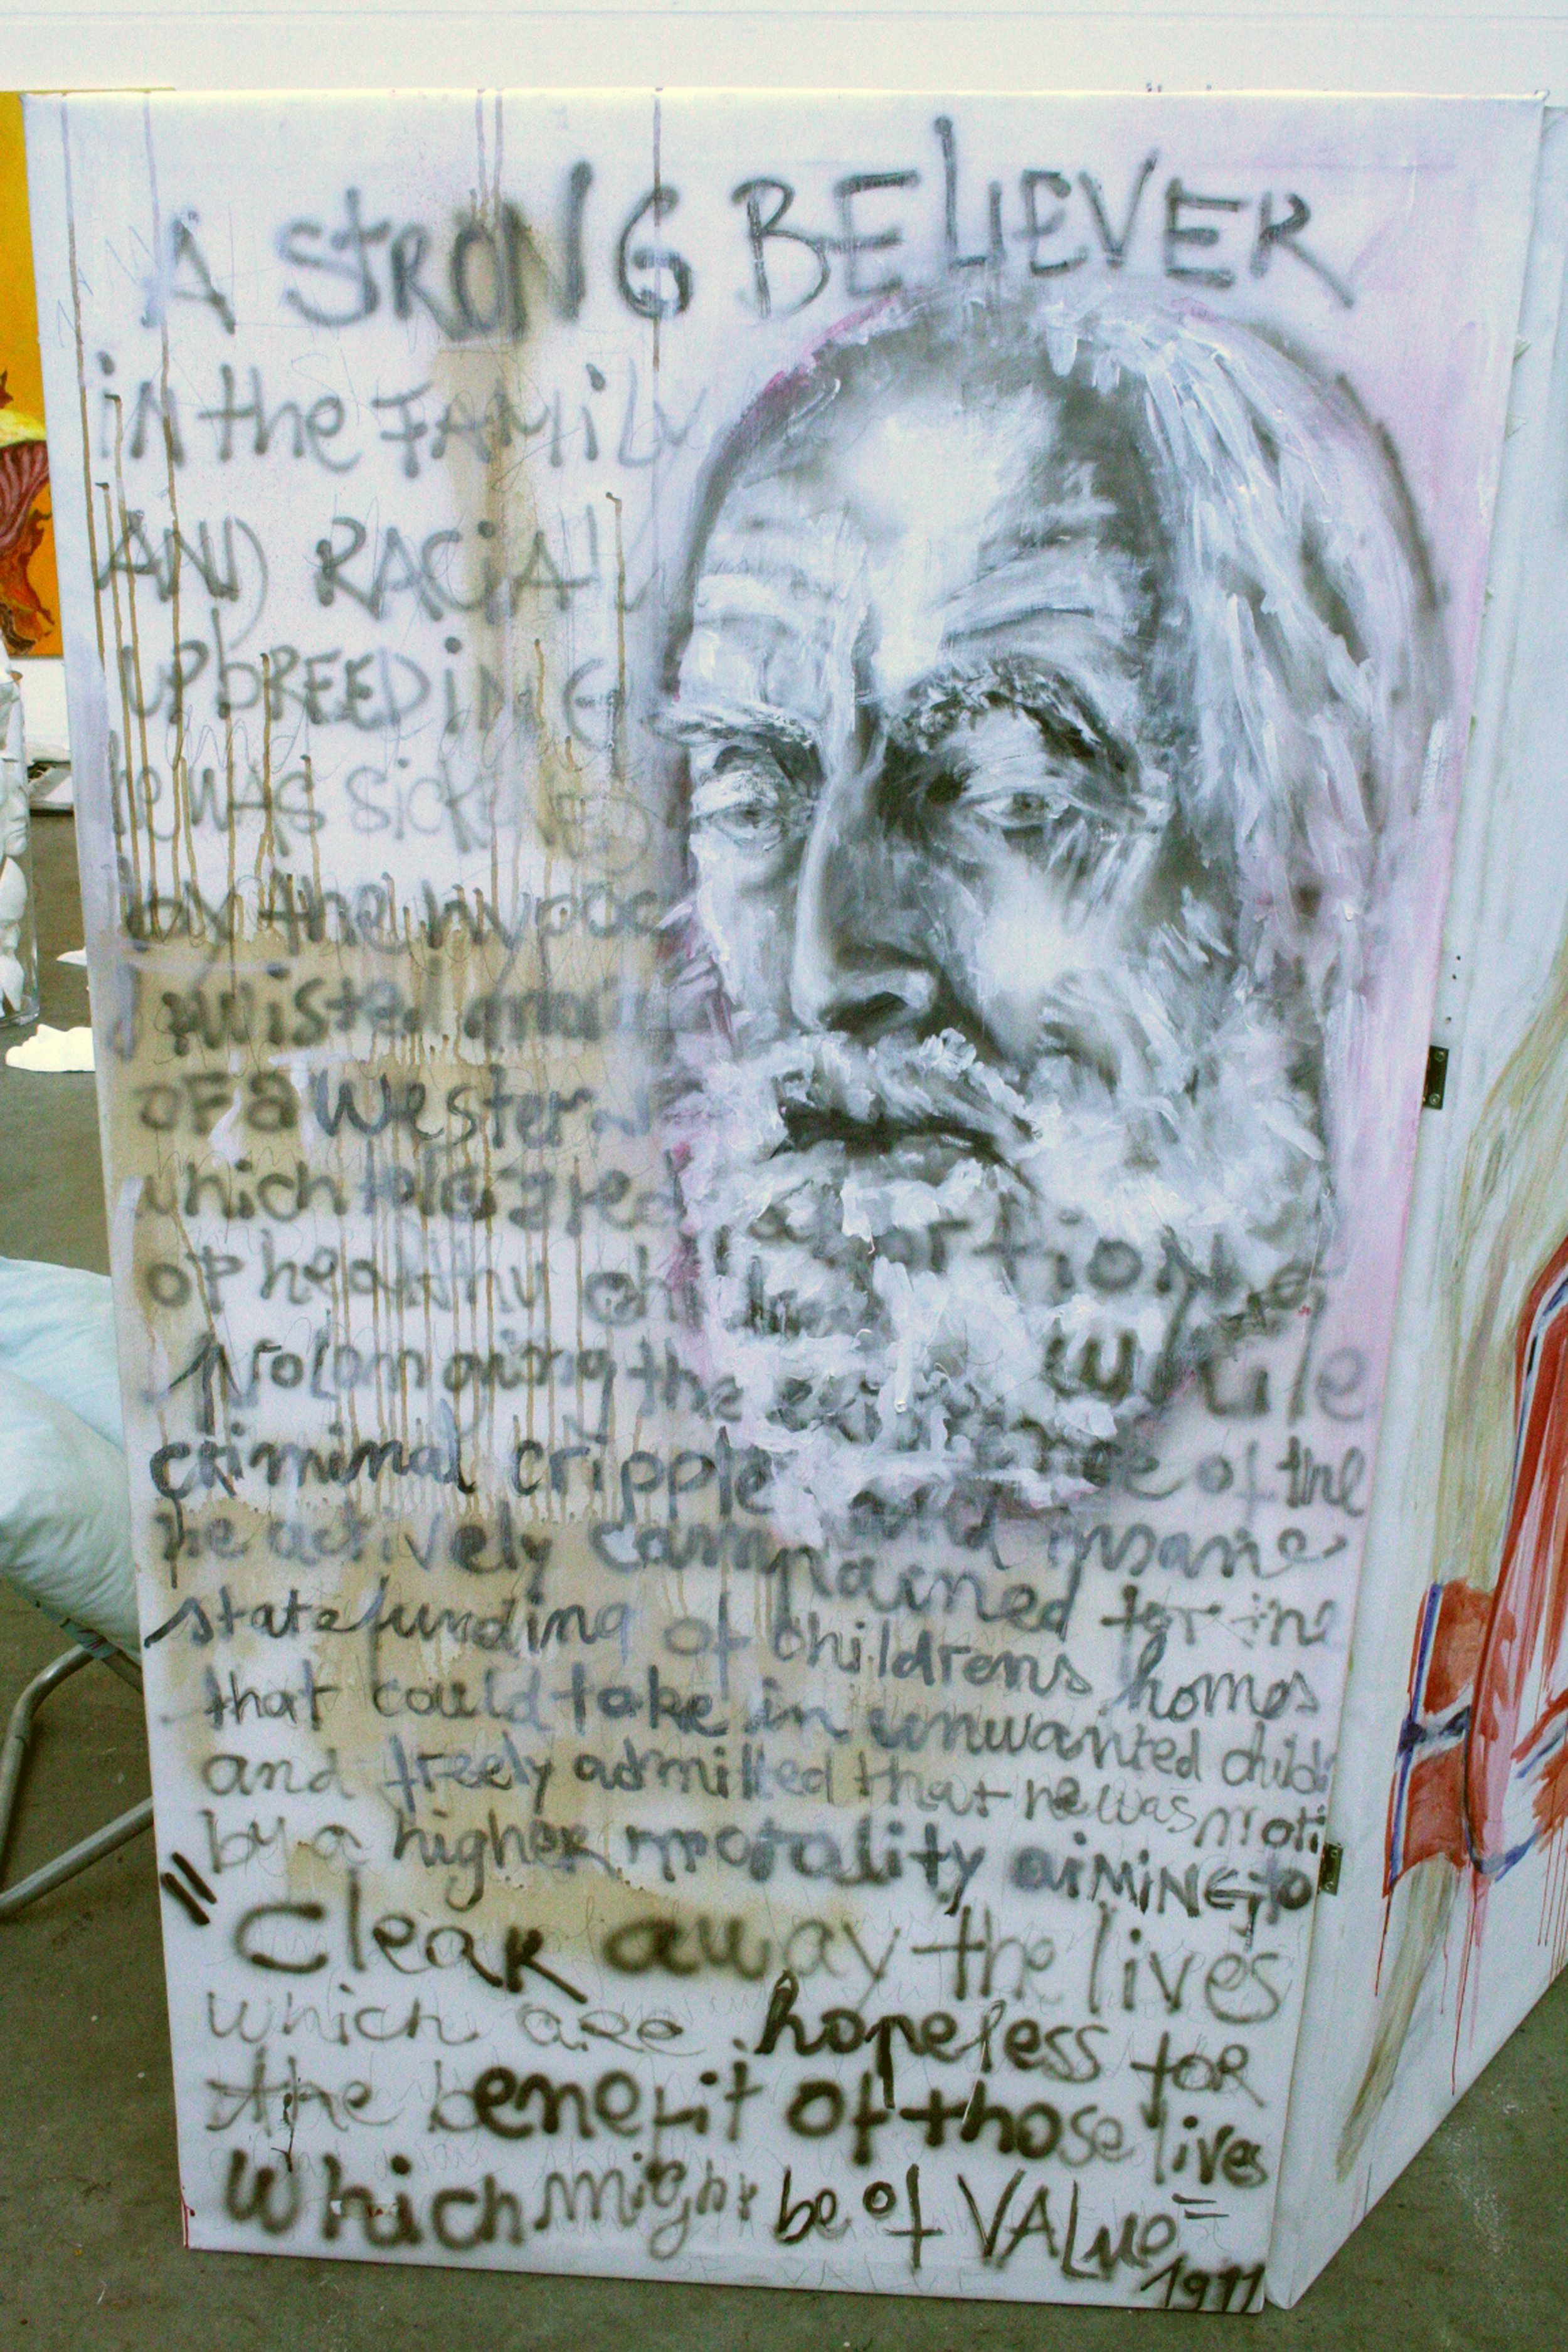 A STRONG BELIEVER
in the FAMILY
AND RACIAL
UPbREEDiNG
he WAS sickened
by the hypoc
twisted
OF a Western
which tolerated abortion
of healthy chi
Prolonging the while
criminal cripple of the
he actively campained and insane for the
state funding of childrens homes
that could take in unwanted child
and freely admitted that he was moti
by a higher morality aiMiNG to
"Clear away the lives
which are hopeless for
the benefit of those lives
which might be of VALue"
1911